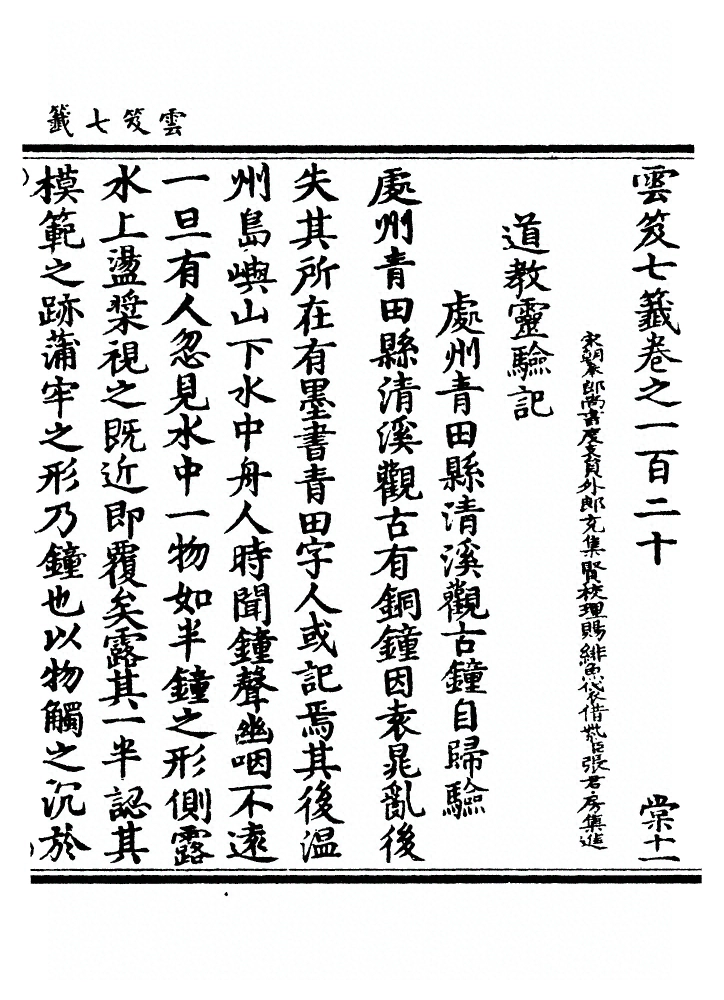 雲笈七籤
雲笈七籤卷之一百二十 棠十一
宋朝奉郎尚書度支員外郎充集賢校理賜緋魚袋借紫臣張君房集進
道教靈驗記
處州青田縣清溪觀古鐘自歸驗
處州青田縣清溪觀古有銅鐘因袁晁亂後
失其所在有墨書青田字人或記焉其後溫
州島嶼山下水中舟人時聞鐘聲幽咽不遠
一旦有人忽見水中一物如半鐘之形側露
水上盪槳視之既近即覆矣露其一半認其
模範之跡蒲牢之形乃鐘也以物觸之沉於